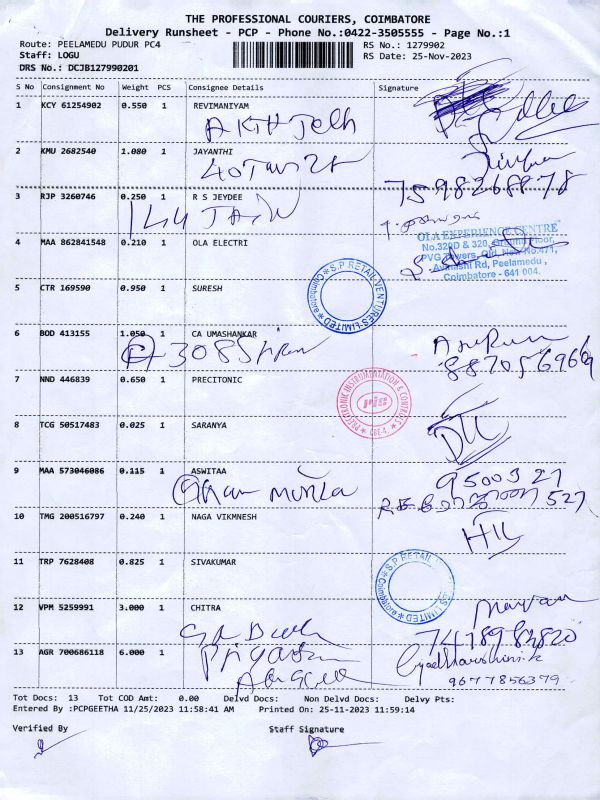 THE PROFESSIONAL COURIERS, COIMBATORE
Delivery Runsheet - PCP - Phone No.:0422-3505555 - Page No.:1
Route: PEELAMEDU PUDUR PC4 RS No.: 1279902
Staff: LOGU RS Date: 25-Nov-2023
DRS No.: DCJB127990201
S No Consignment No Weight PCS Consignee Details Signature
1 KCY 61254902 0.550 1 REVIMANIYAM
2 KMU 2682540 1.080 1 JAYANTHI
7598268878
3 RJP 3260746 0.250 1 R S JEYDEE
144 JAIN
4 MAA 862841548 0.210 1 OLA ELECTRI
OLA EXPERIENCE CENTRE
No.320D & 320, Ground Floor,
PVG Towers, Old, New No.471,
Avinashi Rd, Peelamedu,
Coimbatore - 641 004.
5 CTR 169590 0.950 1 SURESH
S.P RETAIL VENTURES LIMITED
Coimbatore
6 BOD 413155 1.050 1 CA UMASHANKAR
Arun
8870569669
7 NND 446839 0.650 1 PRECITONIC
PRECITRONIC INSTRUMENTATION & CONTROLS
pis
CBE-4.
8 TCG 50517483 0.025 1 SARANYA
9 MAA 573046086 0.115 1 ASWITAA
9500327
527
10 TMG 200516797 0.240 1 NAGA VIKMNESH
11 TRP 7628408 0.825 1 SIVAKUMAR
S.P RETAIL VENTURES LIMITED
Coimbatore
12 VPM 5259991 3.000 1 CHITRA
13 AGR 700686118 6.000 1
9677856379
Tot Docs: 13 Tot COD Amt: 0.00 Delvd Docs: Non Delvd Docs: Delvy Pts:
Entered By :PCPGEETHA 11/25/2023 11:58:41 AM Printed On: 25-11-2023 11:59:14
Verified By Staff Signature